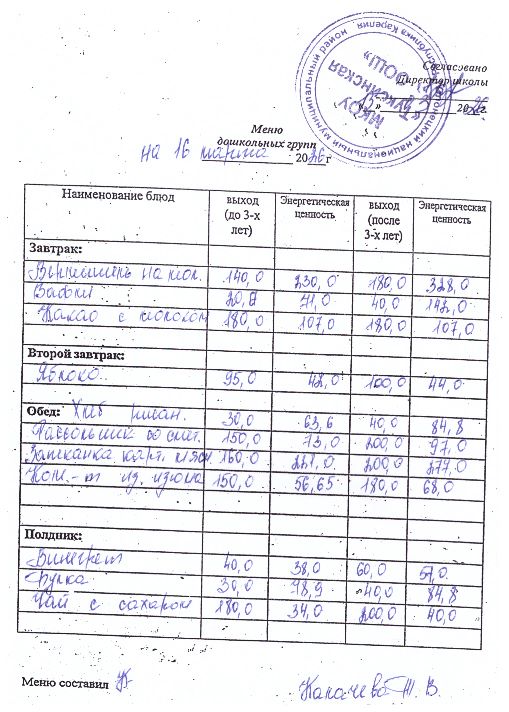 Согласовано
Директор школы
Олонецкий национальный муниципальный район Республика Карелия
МКОУ
"Туксинская
ООШ"
Меню
дошкольных групп
на 16 марта 2026 г
Наименование блюд выход (до 3-х лет) Энергетическая ценность выход (после 3-х лет) Энергетическая ценность
Завтрак:
140,0 230,0 180,0 328,0
Вафли 20,0 71,0 40,0 142,0
Какао с молоком 180,0 107,0 180,0 107,0
Второй завтрак:
Яблоко 95,0 42,0 100,0 44,0
Обед: Хлеб ржан. 30,0 63,6 40,0 84,8
Рассольник со смет. 150,0 73,0 200,0 97,0
Запеканка карт. мясн. 160,0 221,0 200,0 277,0
Комп-т из изюма 150,0 56,65 180,0 68,0
Полдник:
Винегрет 40,0 38,0 60,0 57,0
Булка 30,0 78,9 40,0 84,8
Чай с сахаром 180,0 34,0 200,0 40,0
Меню составил
Капачева Т. В.